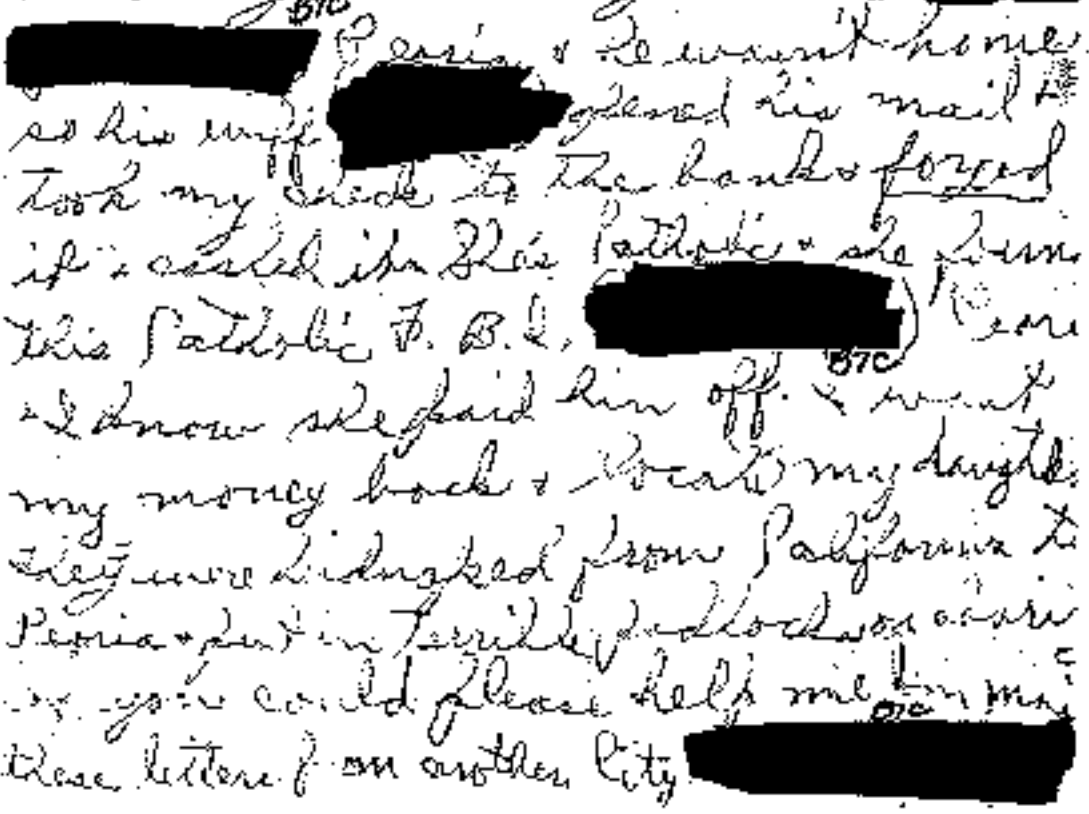 B7C
Peoria & he wasn't home
so his wife opened his mail &
took my check to the bank & forged
it & cashed it. She's Catholic & she
this Catholic F. B. I.
B7C
& I know she paid him off. I want
my money back & locate my
they were kidnaped from California to
Peoria & put in terrible
you could please help me
B7C
these letters from another City